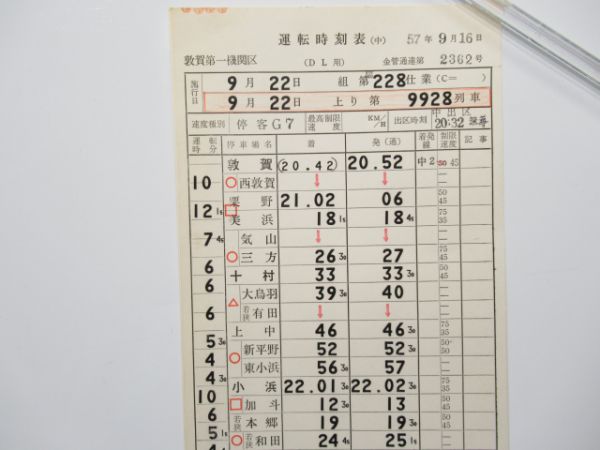 運転時刻表(中) 57年9月16日
敦賀第一機関区 (DL用) 金管通達第2362号
施行日 9月22日 組第228仕業(C= )
9月22日 上り第9928列車
速度種別 停客G7 最高制限速度 KM/H 出区時刻 中出区 20:32
運転時分 停車場名 着 発(通) 着発線 制限速度 記事
敦賀 (20.42) 20.52 中2 50 45
10 西敦賀 ↓ ↓ — —
栗野 21.02 06 50 45
12 1s 美浜 18 1s 18 4s 75 35
7 4s 気山 ↓ ↓ — —
三方 26 3o 27 75 45
6 十村 33 33 3o 50 45
6 大鳥羽 39 3o 40 — —
6 若狭有田 ↓ ↓ — —
上中 46 46 3o 75 35
5 3o 新平野 52 52 3o 50 50
4 東小浜 56 3o 57 — —
4 3o 小浜 22.01 3o 22.02 3o 75 35
10 加斗 12 3o 13 50 45
6 若狭本郷 19 19 3o 50 45
5 若狭和田 24 4s 25 1s